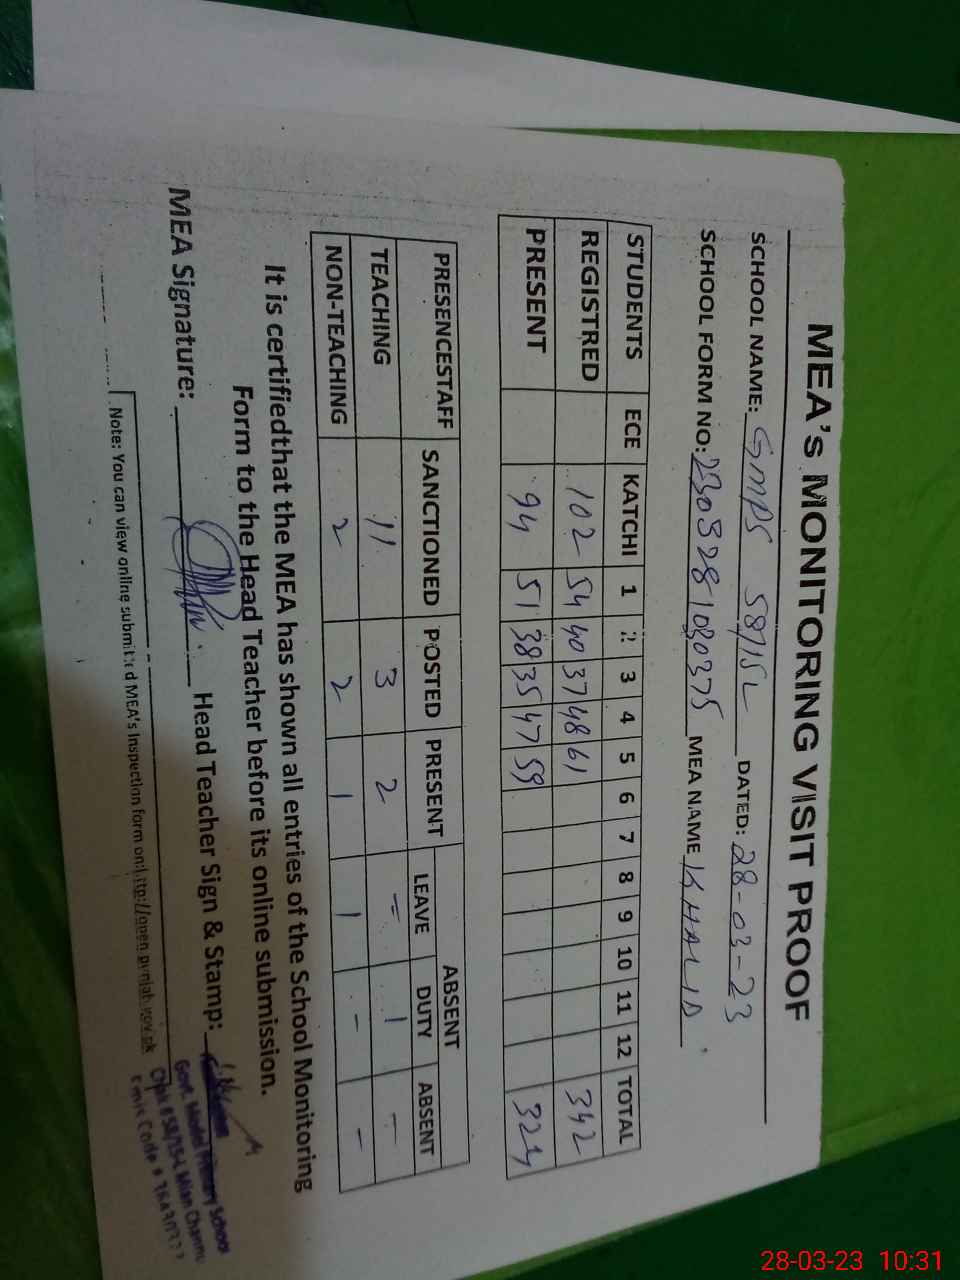 MEA's MONITORING VISIT PROOF
SCHOOL NAME: GMPS 58/15L DATED: 28-03-23
SCHOOL FORM NO: MEA NAME KHALID
STUDENTS ECE KATCHI 1 2 3 4 5 6 7 8 9 10 11 12 TOTAL
REGISTRED 102 54 40 37 48 61 342
PRESENT 94 51 38 35 47 59 324
PRESENCESTAFF SANCTIONED POSTED PRESENT ABSENT
LEAVE DUTY ABSENT
TEACHING 11 3 2 - 1 -
NON-TEACHING 2 2 1 1 - -
It is certifiedthat the MEA has shown all entries of the School Monitoring
Form to the Head Teacher before its online submission.
MEA Signature: Head Teacher Sign & Stamp:
Govt. Model Primary School
Chak # 58/15-L Mian Channu
Emis Code #
Note: You can view online submitted MEA's Inspection form on:http://open.punjab.gov.pk
28-03-23 10:31